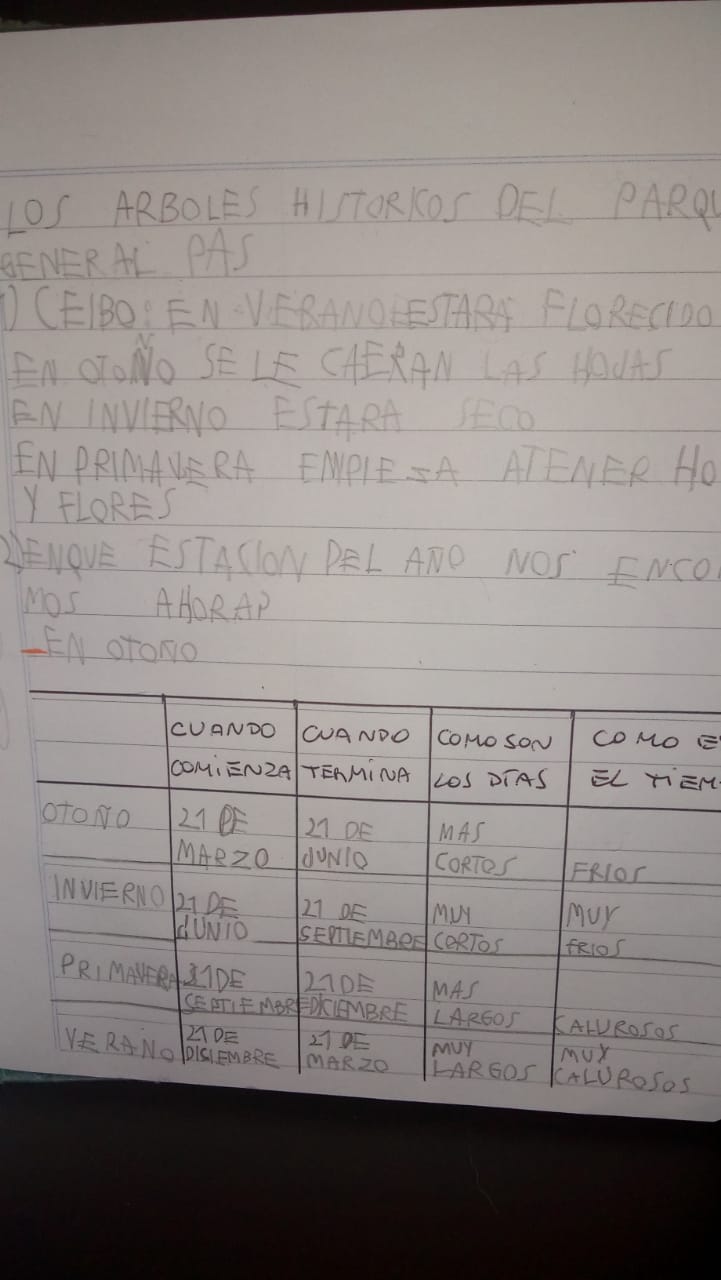 LOS ARBOLES HISTORICOS DEL PARQU
GENERAL PAS
1) CEIBO: EN VERANO ESTARA FLORECIDO
EN OTOÑO SE LE CAERAN LAS HOJAS
EN INVIERNO ESTARA SECO
EN PRIMAVERA EMPIESA ATENER HO
Y FLORES
2) ENQUE ESTACION DEL AÑO NOS ENCO
MOS AHORA?
_EN OTOÑO
CUANDO COMIENZA CUANDO TERMINA COMO SON LOS DÍAS COMO E EL TIEM
OTOÑO 21 DE MARZO 21 DE JUNIO MAS CORTOS FRIOS
INVIERNO 21 DE JUNIO 21 DE SEPTIEMBRE MUY CORTOS MUY FRIOS
PRIMAVERA 21DE SEPTIEMBRE 21DE DICIEMBRE MAS LARGOS CALUROSOS
VERANO 21 DE DISIEMBRE 21 DE MARZO MUY LARGOS MUY CALUROSOS